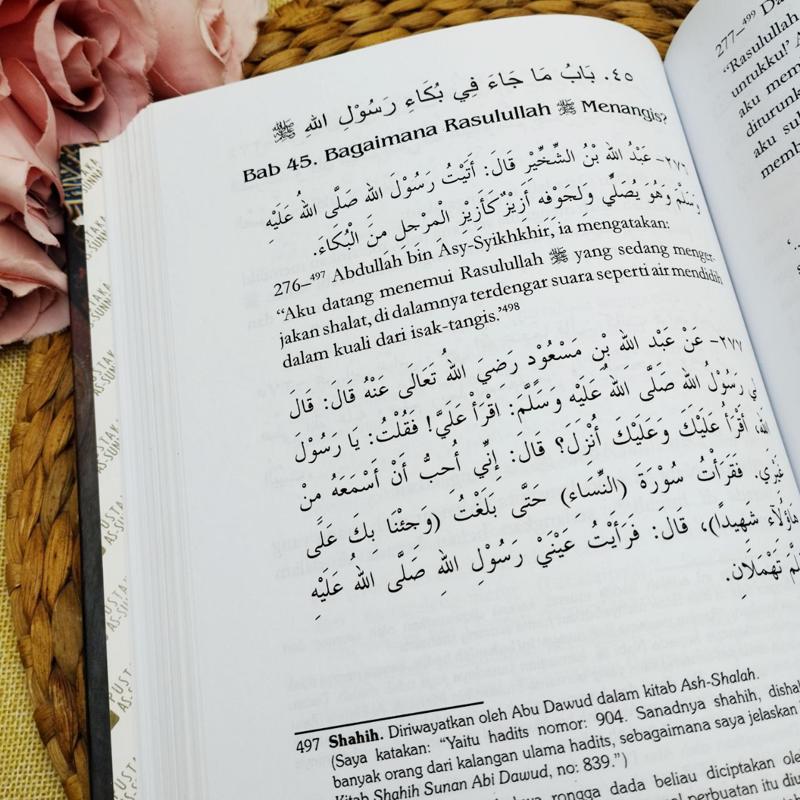 ٤٥. بَابُ مَا جَاءَ فِي بُكَاءِ رَسُوْلِ اللهِ ﷺ
Bab 45. Bagaimana Rasulullah ﷺ Menangis?
٢٧٦- عَبْدُ اللهِ بْنُ الشِّخِّيْرِ قَالَ: أَتَيْتُ رَسُوْلَ اللهِ صَلَّى اللهُ عَلَيْهِ
وَسَلَّمَ وَهُوَ يُصَلِّي وَلِجَوْفِهِ أَزِيْزٌ كَأَزِيْزِ الْمِرْجَلِ مِنَ الْبُكَاءِ.
276–⁴⁹⁷ Abdullah bin Asy-Syikhkhir, ia mengatakan:
“Aku datang menemui Rasulullah ﷺ yang sedang menger-
jakan shalat, di dalamnya terdengar suara seperti air mendidih
dalam kuali dari isak-tangis.’⁴⁹⁸
٢٧٧- عَنْ عَبْدِ اللهِ بْنِ مَسْعُوْدٍ رَضِيَ اللهُ تَعَالَى عَنْهُ قَالَ: قَالَ
لِي رَسُوْلُ اللهِ صَلَّى اللهُ عَلَيْهِ وَسَلَّمَ: اقْرَأْ عَلَيَّ! فَقُلْتُ: يَا رَسُوْلَ
اللهِ، أَقْرَأُ عَلَيْكَ وَعَلَيْكَ أُنْزِلَ؟ قَالَ: إِنِّي أُحِبُّ أَنْ أَسْمَعَهُ مِنْ
غَيْرِي. فَقَرَأْتُ سُوْرَةَ (النِّسَاءِ) حَتَّى بَلَغْتُ (وَجِئْنَا بِكَ عَلَى
هَاؤُلَاءِ شَهِيداً)، قَالَ: فَرَأَيْتُ عَيْنَيْ رَسُوْلِ اللهِ صَلَّى اللهُ عَلَيْهِ
تَهْمِلَانِ.
497 Shahih. Diriwayatkan oleh Abu Dawud dalam kitab Ash-Shalah.
(Saya katakan: “Yaitu hadits nomor: 904. Sanadnya shahih,
banyak orang dari kalangan ulama hadits, sebagaimana saya jelaskan
Kitab Shahih Sunan Abi Dawud, no: 839.”)
rongga dada beliau diciptakan
perbuatan itu
277–⁴⁹⁹
“Rasulullah
untukku!’
aku
diturunk
aku
memb